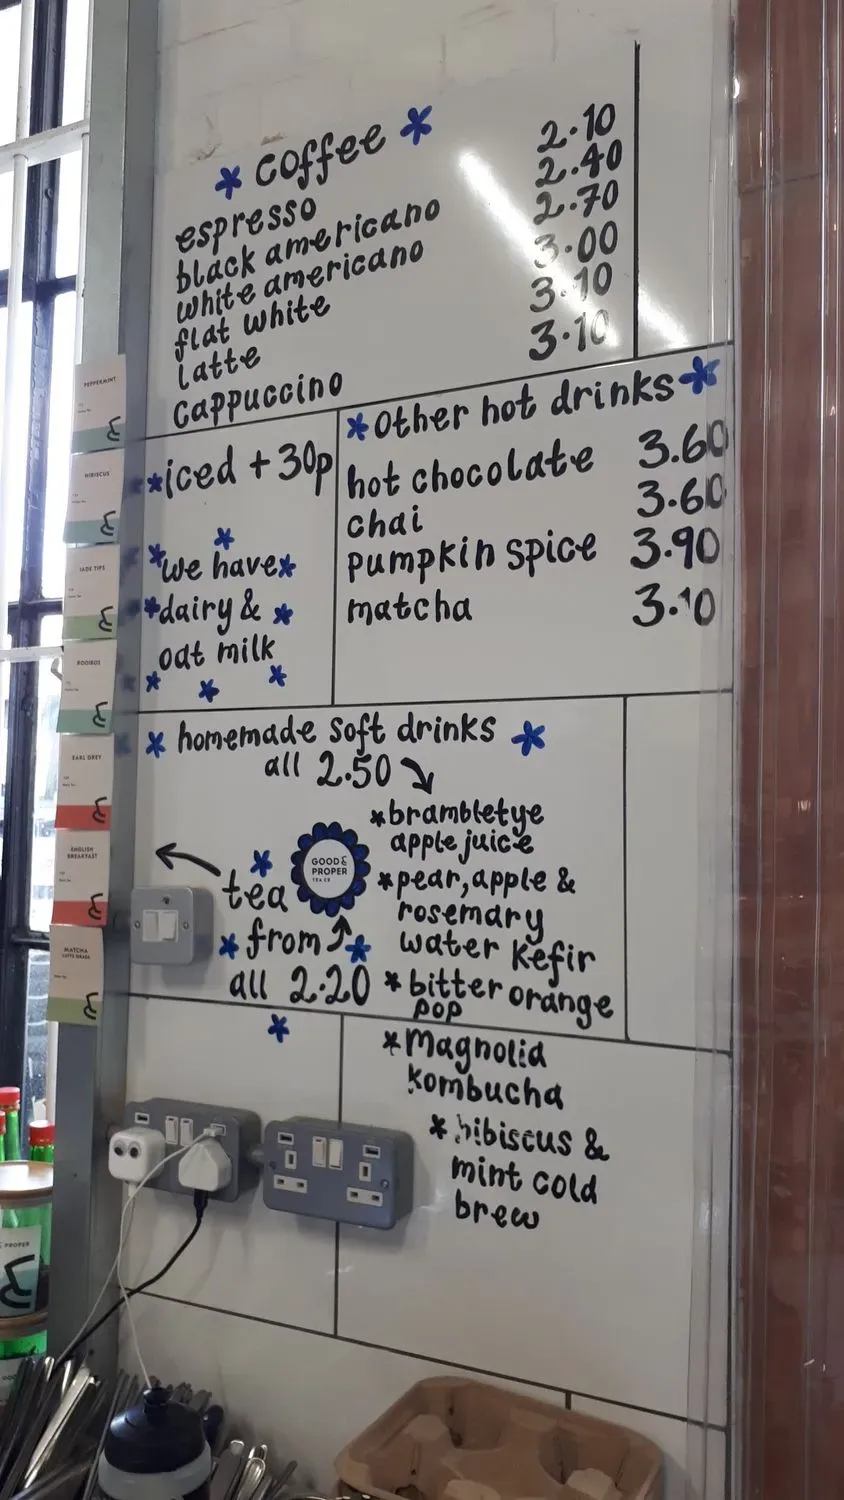 * coffee *
espresso 2.10
black americano 2.40
white americano 2.70
flat white 3.00
latte 3.10
cappuccino 3.10
*iced + 30p
*other hot drinks*
hot chocolate 3.60
chai 3.60
pumpkin spice 3.90
matcha 3.10
*we have*
*dairy & *
oat milk
* homemade soft drinks *
all 2.50
*brambletye
apple juice
*pear, apple &
rosemary
water kefir
*bitter orange
pop
*Magnolia
kombucha
*hibiscus &
mint cold
brew
tea
*from *
all 2.20
GOOD &
PROPER
TEA CO
PEPPERMINT
HIBISCUS
JADE TIPS
ROOIBOS
EARL GREY
ENGLISH
BREAKFAST
MATCHA
PROPER